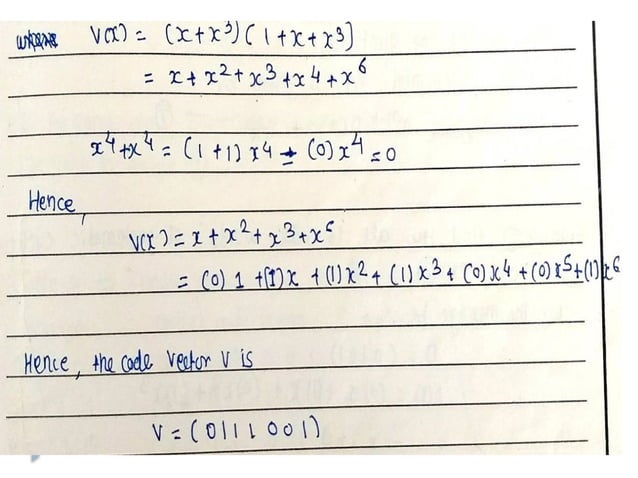 V(x) = (x+x³)(1+x+x³)
= x+x²+x³+x⁴+x⁶
x⁴+x⁴ = (1+1)x⁴ = (0)x⁴ = 0
Hence,
V(x) = x+x²+x³+x⁶
= (0)1 +(1)x +(1)x²+(1)x³+(0)x⁴+(0)x⁵+(1)x⁶
Hence, the code vector V is
V = (0111001)